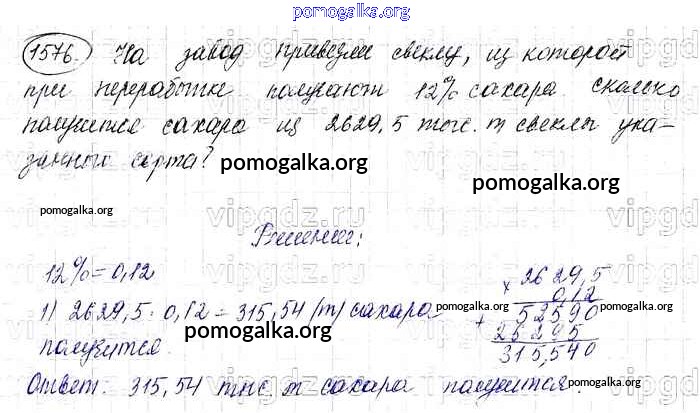 pomogalka.org
1576. На завод привезли свеклу, из которой
при переработке получают 12% сахара. Сколько
получится сахара из 2629,5 тыс. т свеклы ука-
занного сорта?
pomogalka.org
pomogalka.org
pomogalka.org
Решение:
12% = 0,12
1) 2629,5 · 0,12 = 315,54 (т) сахара
получится.
× 2629,5
0,12
+ 52590
26295
315,540
pomogalka.org
pomogalka.org
pomogalka.org
Ответ: 315,54 тыс. т сахара получится.